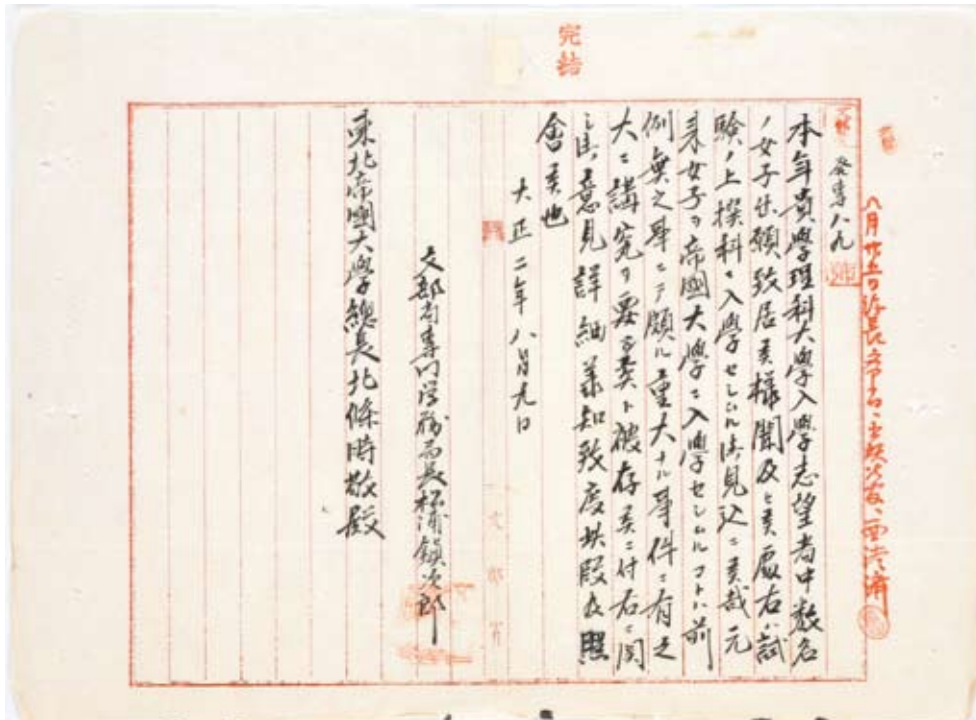 完結
八月廿五日
發専八九號
本年貴學理科大學入學志望者中数名
ノ女子出願致居候様聞及ヒ候處右ハ試
験ノ上撰科ニ入學セシムル御見込ニ候哉元
来女子ヲ帝國大學ニ入學セシムルコトハ前
例無之事ニテ頗ル重大ナル事件ニ有之
大ニ講究ヲ要シ候ト被存候ニ付右ニ関
シ御意見詳細承知致度此段及照
會候也
大正二年八月九日
文部省専門学務局長松浦鎮次郎
東北帝國大學總長北條時敬殿
文部省